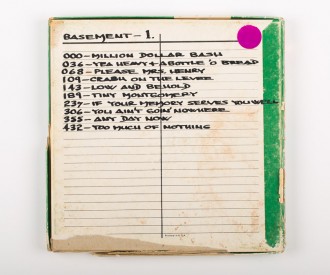 BASEMENT - 1.
000 - MILLION DOLLAR BASH
036 - YEA HEAVY + A BOTTLE 'O BREAD
068 - PLEASE MRS. HENRY
109 - CRASH ON THE LEVEE
143 - LOW AND BEHOLD
189 - TINY MONTGOMERY
237 - IF YOUR MEMORY SERVES YOU WELL
306 - YOU AIN'T GOIN' NOWHERE
355 - ANY DAY NOW
432 - TOO MUCH OF NOTHING